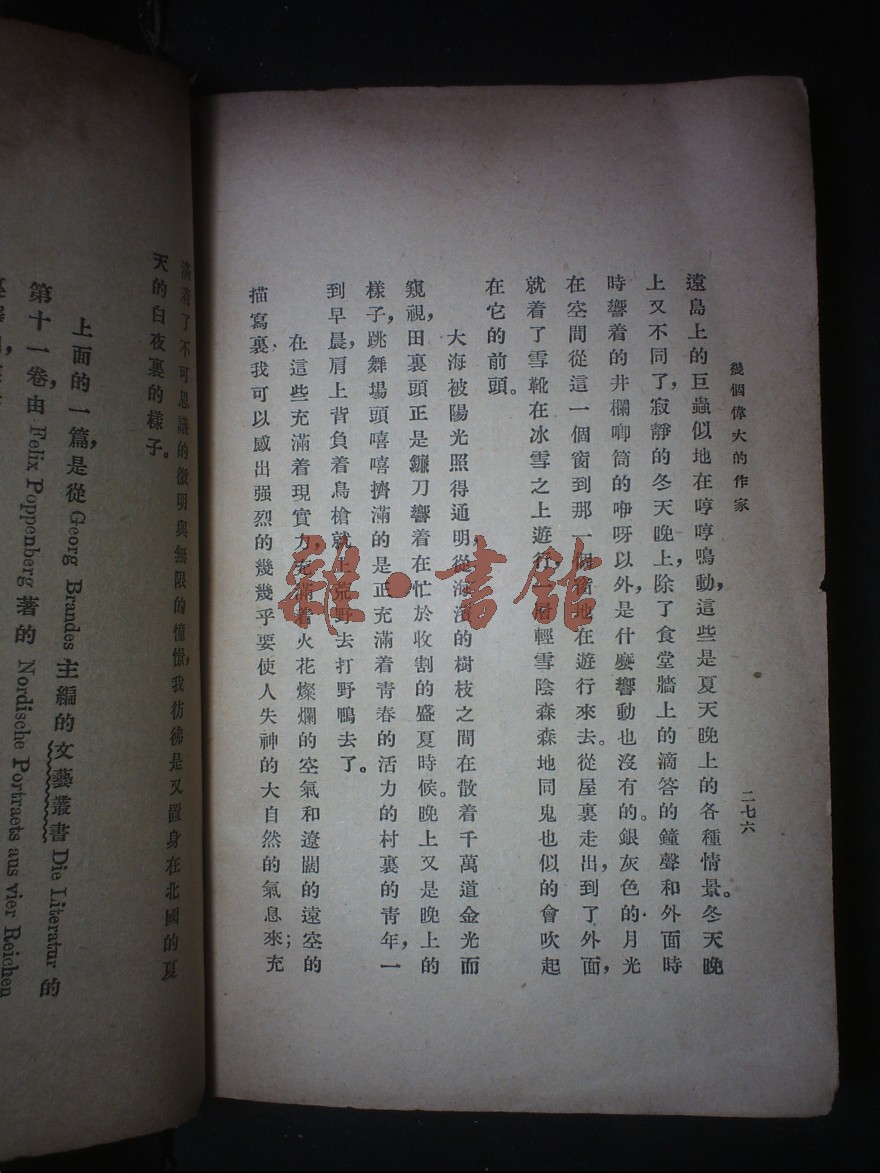 幾個偉大的作家
二七六
遠島上的巨蟲似地在哼哼鳴動，這些是夏天晚上的各種情景。冬天晚
上又不同了，寂靜的冬天晚上，除了食堂牆上的滴答的鐘聲和外面時
時響着的井欄唧筒的咿呀以外，是什麼響動也沒有的。銀灰色的月光
在空間從這一個窗到那一個窗地在遊行來去。從屋裏走出，到了外面，
就着了雪靴在冰雪之上遊行，一樹輕雪陰森森地同鬼也似的會吹起
在它的前頭。
大海被陽光照得通明，從海濱的樹枝之間在散着千萬道金光而
窺視，田裏頭正是鐮刀響着在忙於收割的盛夏時候。晚上又是晚上的
樣子，跳舞場頭嘻嘻擠滿的是正充滿着青春的活力的村裏的青年，一
到早晨，肩上背負着鳥槍就上荒野去打野鴨去了。
在這些充滿着現實力，充滿着火花燦爛的空氣和遼闊的遠空的
描寫裏，我可以感出强烈的幾幾乎要使人失神的大自然的氣息來；充
滿着了不可思議的微明與無限的憧憬，我彷彿是又置身在北國的夏
天的白夜裏的樣子。
上面的一篇，是從 Georg Brandes 主編的文藝叢書 Die Literatur 的
第十一卷，由 Felix Poppenberg 著的 Nordische Portraets aus vier Reichen
雜·書館